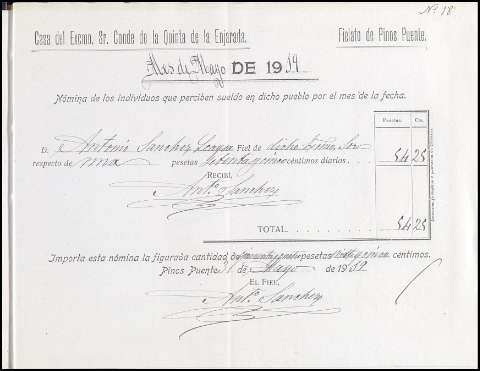 Nº 18
Casa del Excmo. Sr. Conde de la Quinta de la Enjarada.
Fielato de Pinos Puente.
Mes de Mayo DE 19
Nómina de los individuos que perciben sueldo en dicho pueblo por el mes de la fecha.
Pesetas. Cts.
D. Antonio Sanchez Fiel de dicho
respecto de una pesetas setenta y cinco céntimos diarios 54 25
RECIBÍ,
Antº Sanchez
TOTAL 54 25
Importa esta nómina la figurada cantidad de cincuenta y cuatro pesetas veinticinco céntimos.
Pinos Puente 31 de Mayo de 19
EL FIEL,
Antº Sanchez